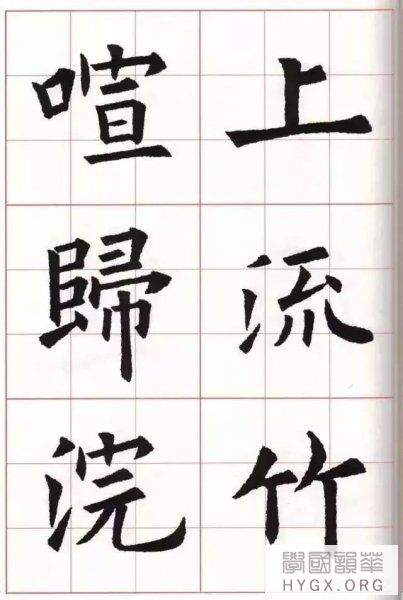 上流竹
喧歸浣
華韻國學
HYGX.ORG